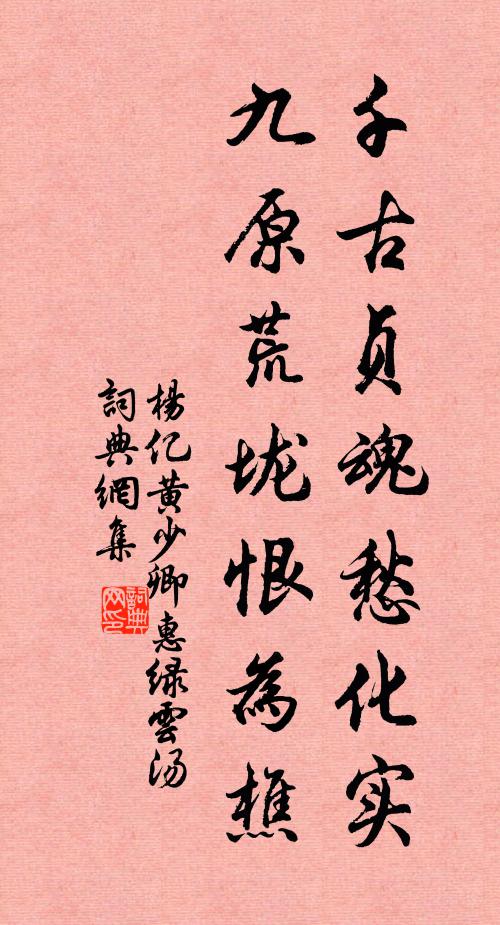 千古贞魂愁化实
九原荒垅恨為樵
楊亿黄少卿惠绿雲汤
詞典網集
詞典网印